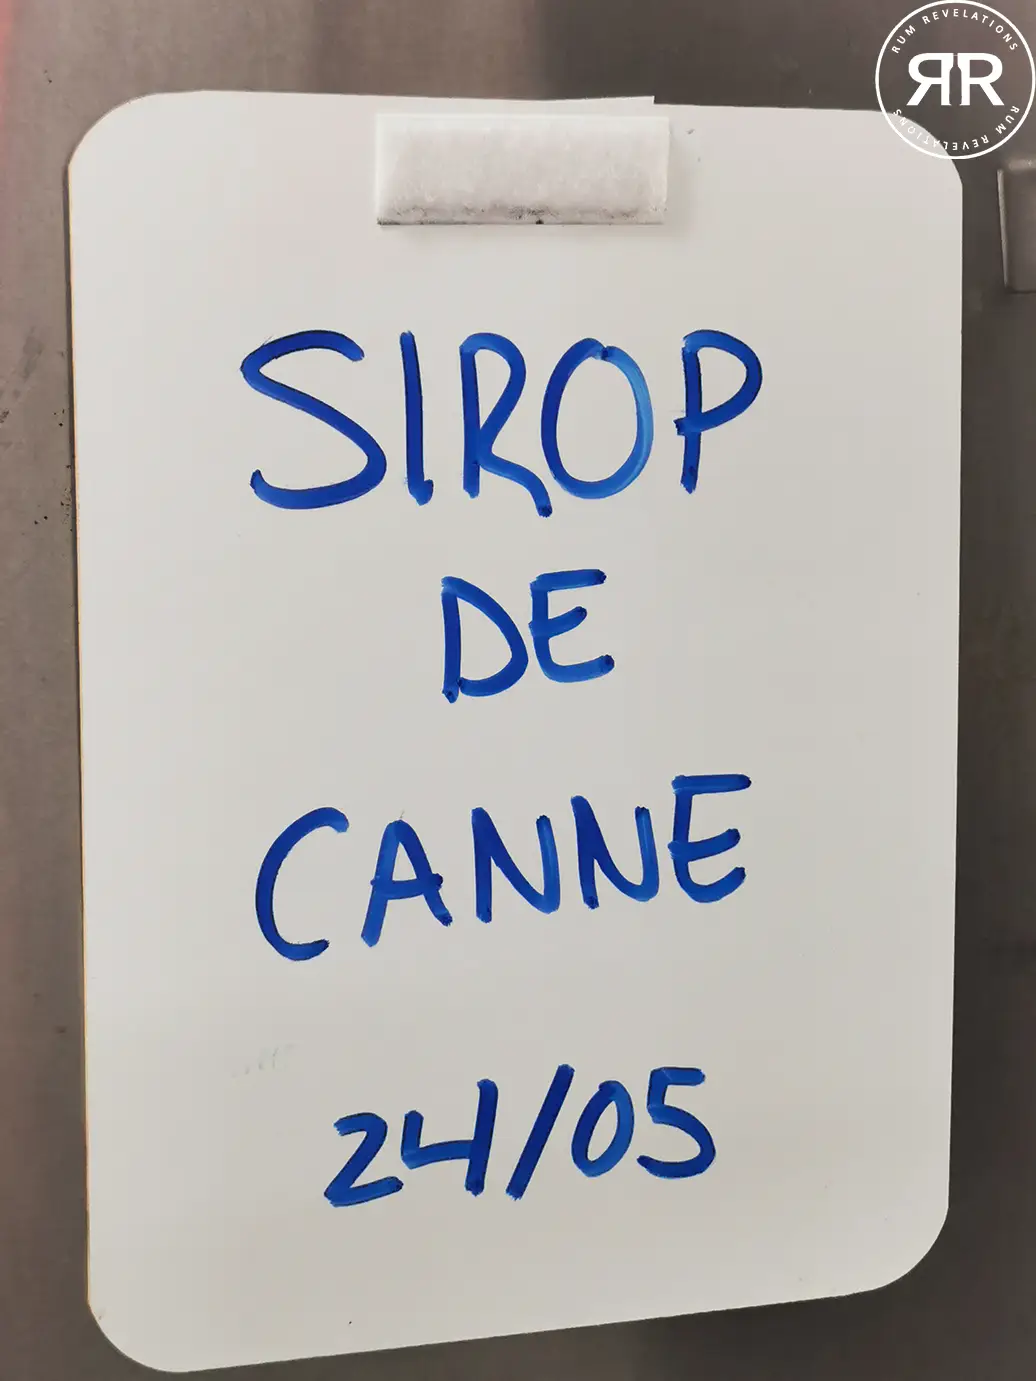 RUM REVELATIONS
RR
RUM REVELATIONS
SIROP
DE
CANNE
24/05